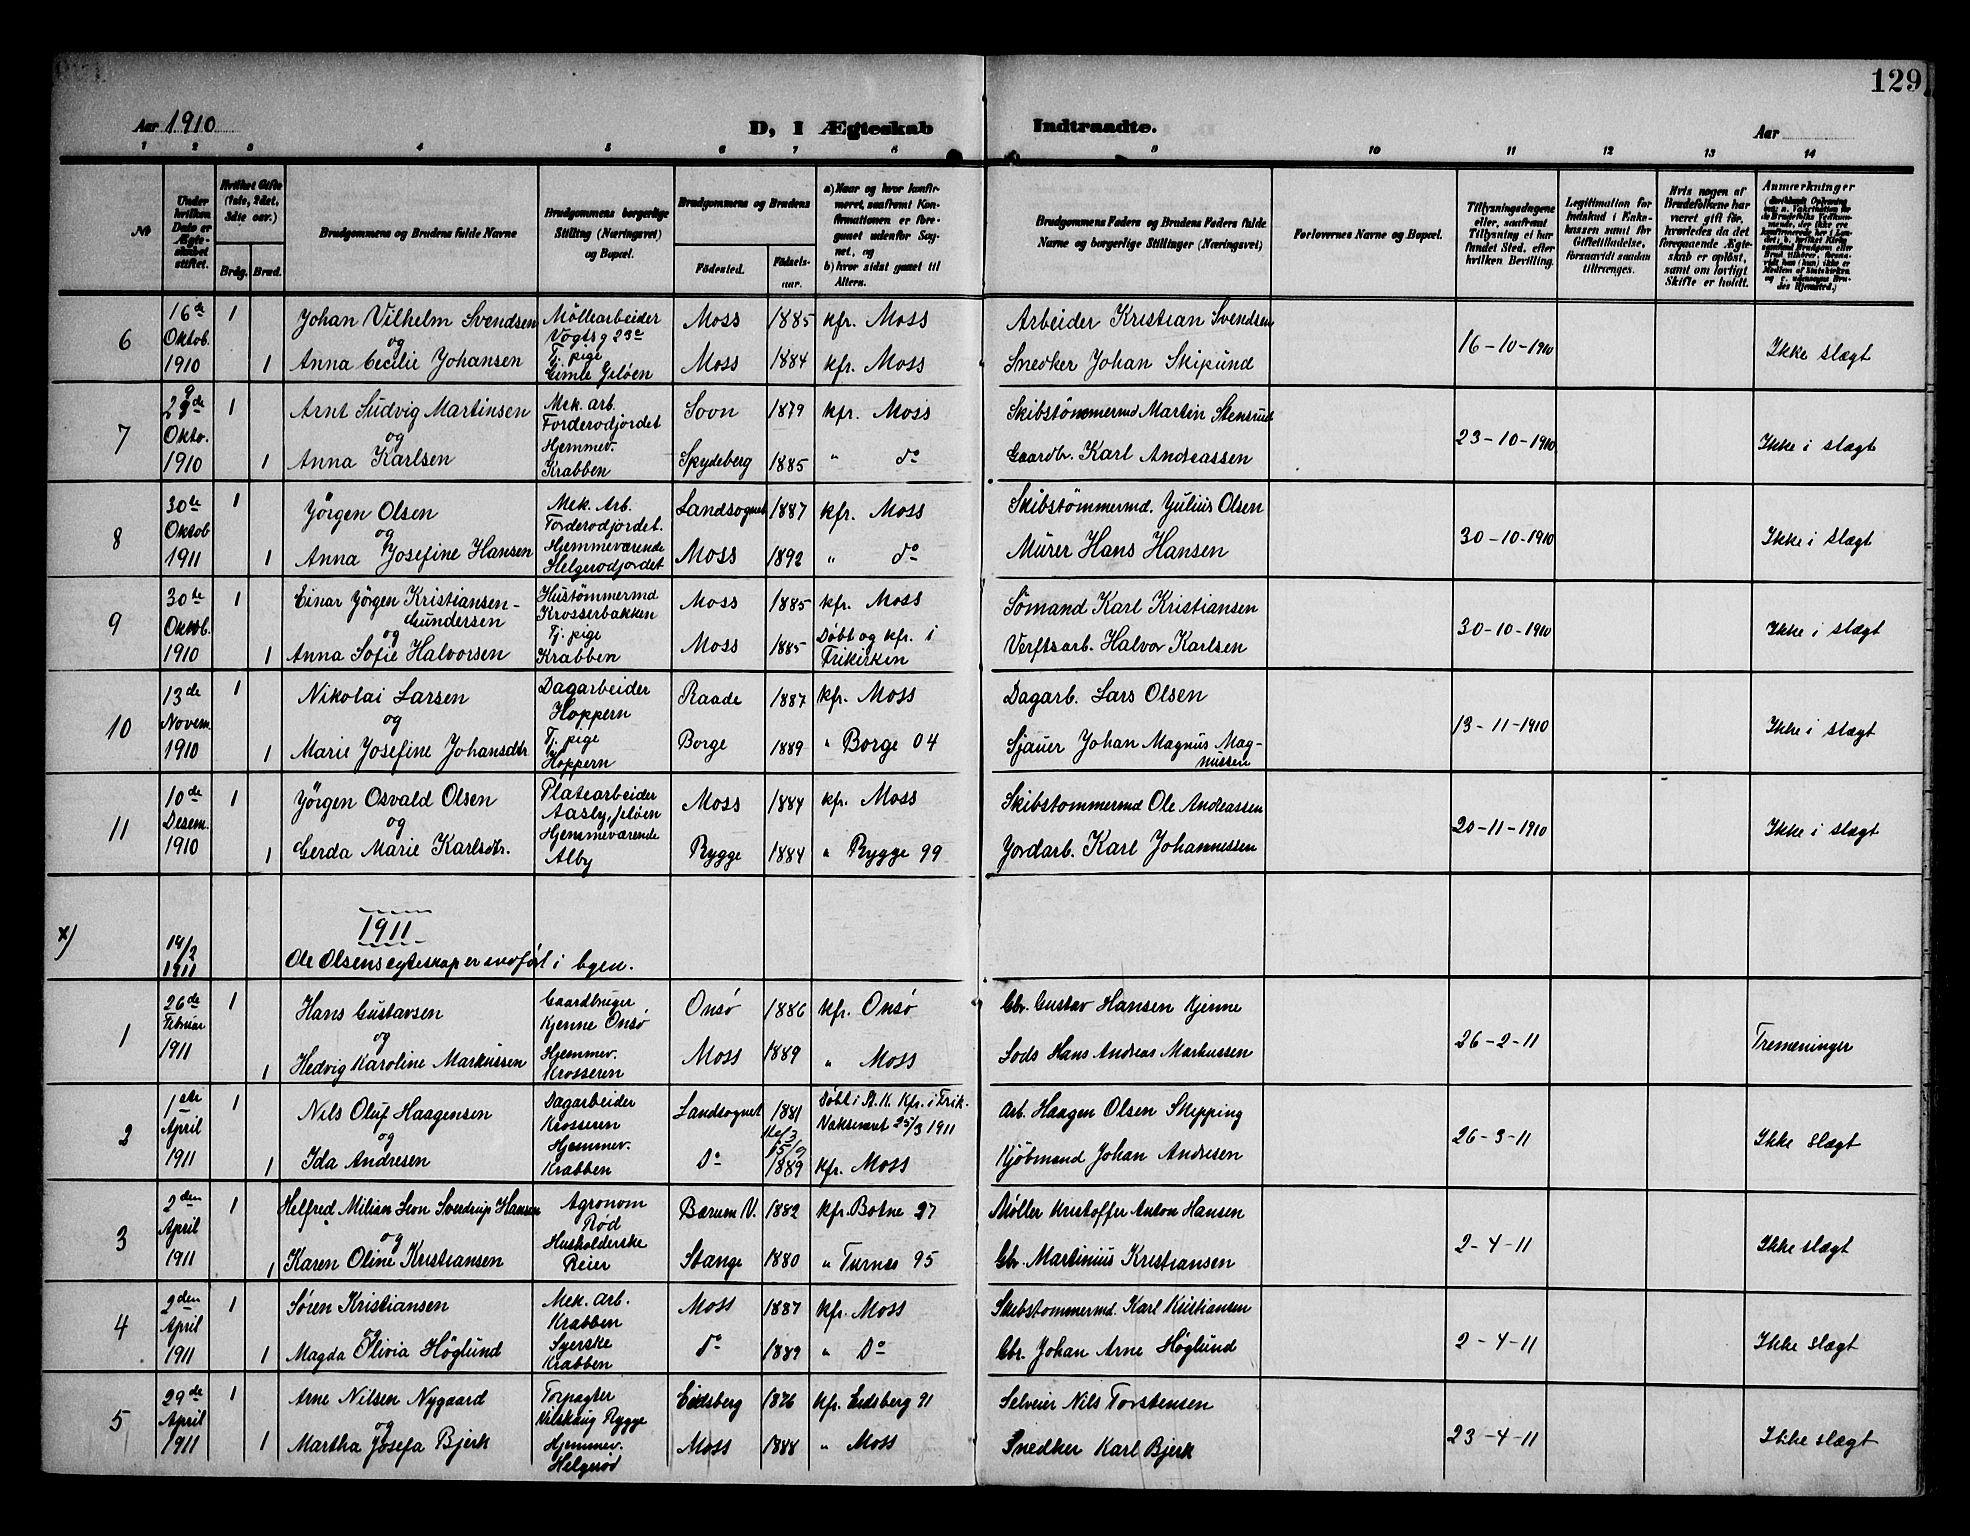 129
Aar 1910
D, I Ægteskab Indtraadte.
Aar
1 2 3 4 5 6 7 8 9 10 11 12 13 14
№
Under hvilken Dato er Ægteskabet stiftet.
Hvilket Gifte (1ste, 2det, 3die osv.)
Brdg. Brud.
Brudgommens og Brudens fulde Navne
Brudgommens borgerlige Stilling (Næringsvei) og Bopæl.
Brudgommens og Brudens
Fødested. Fødselsaar.
a) Naar og hvor konfirmeret, saafremt Konfirmationen er foregaaet udenfor Sognet, og
b) hvor sidst gaaet til Alters.
Brudgommens Faders og Brudens Faders fulde Navne og borgerlige Stillinger (Næringsvei)
Forlovernes Navne og Bopæl.
Tillysningsdagene eller, saafremt Tillysning ei har fundet Sted, efter hvilken Bevilling.
Legitimation for Indskud i Enkekassen samt for Giftetilladelse, forsaavidt saadan tiltrænges.
Hvis nogen af Brudefolkene har været gift før, hvorledes da det foregaaende Ægteskab er opløst, samt om lovligt Skifte er holdt.
Anmærkninger
6 16de Oktob. 1910 1 1
Johan Vilhelm Svendsen
og
Anna Cecilie Johansen
Möllearbeider
Vogtsg 23c
Tj. pige
Gimle Jeløen
Moss 1885 kfr. Moss
Moss 1884 kfr. Moss
Arbeider Kristian Svendsen
Snedker Johan Skiplund
16-10-1910
Ikke slægt
7 Okto. 1910 1 1
Arnt Ludvig Martinsen
og
Anna Karlsen
Mek. arb.
Forderodjordet
Hjemmev.
Krabben
Soon 1879 kfr. Moss
Spydeberg 1885 " do
Skibstömmermd Martin Stensrud
Gaardbr. Karl Andreassen
23-10-1910
Ikke i slægt
8 30te Oktob 1911 1 1
Jörgen Olsen
og
Anna Josefine Hansen
Mek. Arb.
Forderodjordet.
Hjemmeværende
Helgerodjordet
Landsognet 1887 kfr. Moss
Moss 1892 " do
Skibstömmermd. Julius Olsen
Murer Hans Hansen
30-10-1910
Ikke i slægt
9 30te Oktob. 1910 1 1
Einar Jörgen Kristiansen-
Gundersen
og
Anna Sofie Halvorsen
Hustömmermd
Krosserbakken
Tj. pige
Krabben
Moss 1885 kfr. Moss
Moss 1885 Döbt og kfr. i
Frikirken
Sömand Karl Kristiansen
Verftsarb. Halvor Karlsen
30-10-1910
Ikke i slægt
10 13de Novem. 1910 1 1
Nikolai Larsen
og
Marie Josefine Johansdtr
Dagarbeider
Hoppern
Tj. pige
Hoppern
Raade 1887 kfr. Moss
Borge 1889 " Borge 04
Dagarb. Lars Olsen
Sjauer Johan Magnus Mag-
nussen
13-11-1910
Ikke i slægt
11 10de Desem. 1910 1 1
Jörgen Osvald Olsen
og
Gerda Marie Karlsdtr.
Platearbeider
Aasly, Jeløen
Hjemmeværende
Alby
Moss 1884 kfr. Moss
Rygge 1884 " Rygge 99
Skibstommermd Ole Andreassen
Jordarb. Karl Johannessen
20-11-1910
Ikke i slægt
1911
x) 14/2 1911
Ole Olsens egteskap er indfört i byen.
1 26de Februar 1911 1 1
Hans Gustavsen
og
Hedvig Karoline Markussen
Gaardbruger
Kjenne Onsø
Hjemmev.
Krosseren
Onsø 1886 kfr. Onsø
Moss 1889 " Moss
Gbr. Gustav Hansen Kjenne
Lods Hans Andreas Markussen
26-2-11
Tremeninger
2 1ste April 1911 1 1
Nils Oluf Haagensen
og
Ida Andresen
Dagarbeider
Krosseren
Hjemmev.
Krabben
Landsognet 1881 Döbt i St. K. Kfr. i Frik.
Naksineret 25/3 1911
Do 1889 kfr. Moss
Arb. Haagen Olsen Skipping
Kjöbmand Johan Andresen
26-3-11
Ikke slægt
3 2den April 1911 1 1
Helfred Milian Leon Sverdrup Hansen
og
Karen Oline Kristiansen
Agronom
Rød
Husholderske
Reier
Bærum V. 1882 kfr. Botne 97
Stange 1880 " Furnes 95
Møller Kristoffer Anton Hansen
Gbr. Martinius Kristiansen
2-4-11
Ikke slægt
4 2den April 1911 1 1
Søren Kristiansen
og
Magda Olivia Höglund
Mek. Arb.
Krabben
Syerske
Krabben
Moss 1887 kfr. Moss
do 1889 " Do
Skibstommermd. Karl Kristiansen
Gbr. Johan Arne Höglund
2-4-11
Ikke slægt
5 29de April 1911 1 1
Arne Nilsen Nygaard
og
Martha Josefa Bjerk
Forpagter
Vilskaug Rygge
Hjemmev.
Helgerød
Eidsberg 1876 kfr. Eidsberg 91
Moss 1888 " Moss
Selveier Nils Torstensen
Snedker Karl Bjerk
23-4-11
Ikke slægt